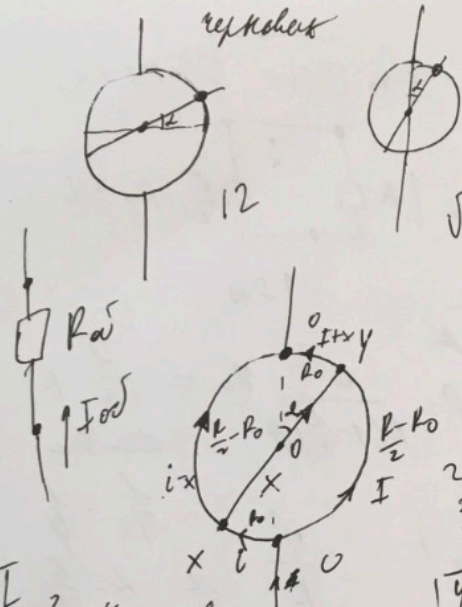 черновик
α
α
12
Rоб
Iоб
0
I+x
y
1
R₀
α
R/2-R₀
0
R/2-R₀
i-x
x
I
R₀
1
x
i
0
I